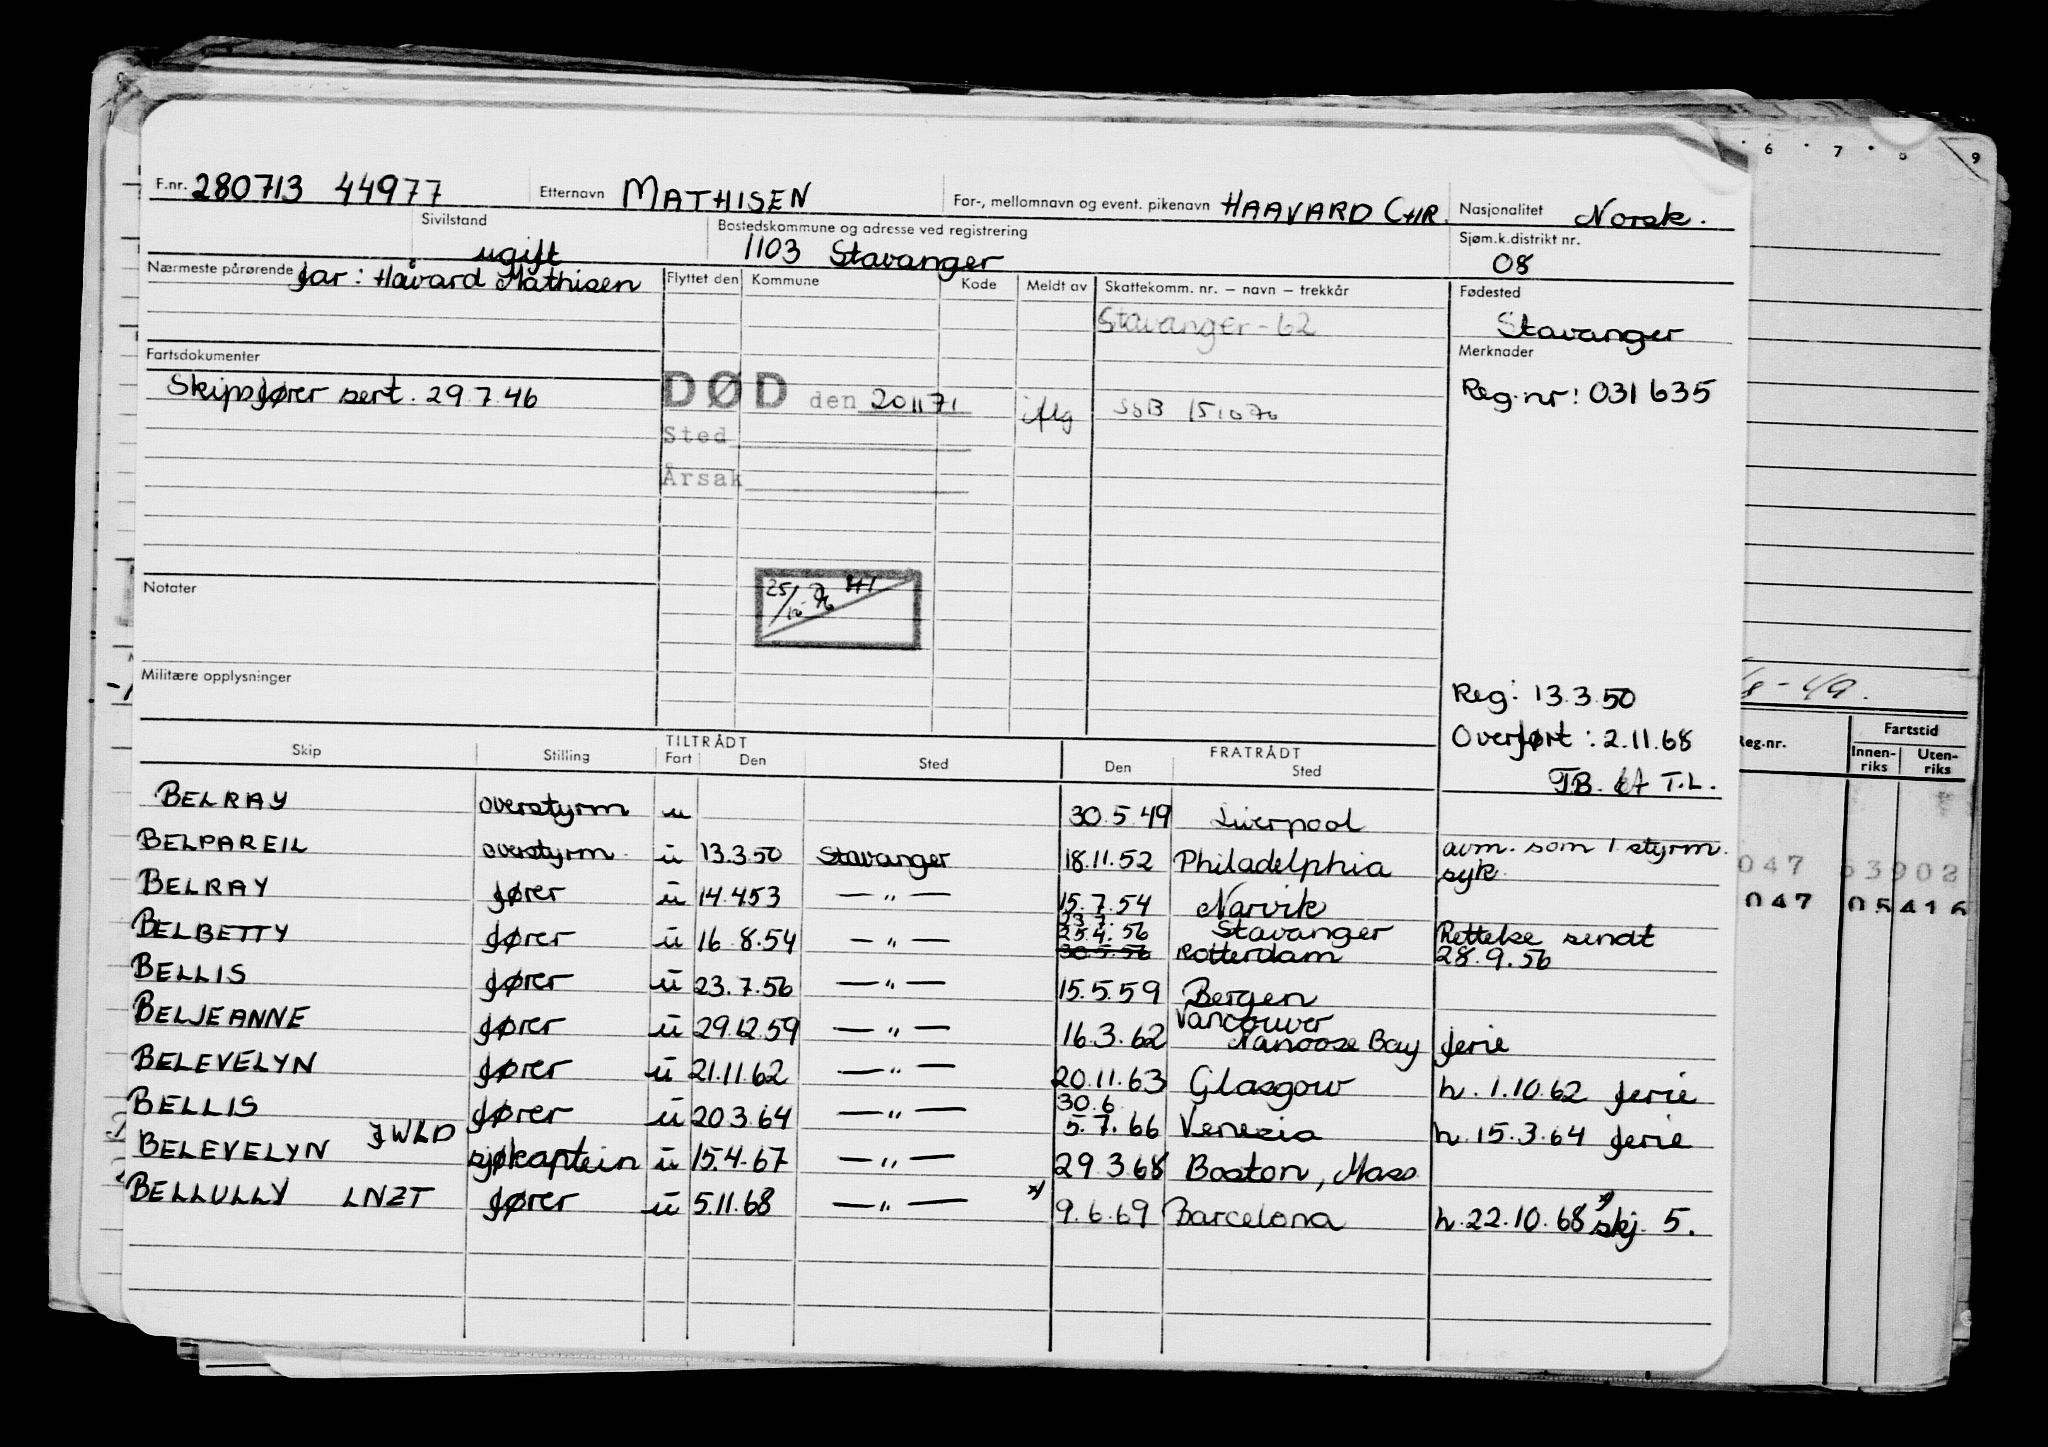 F.nr. 280713 44977 Etternavn MATHISEN For-, mellomnavn og event. pikenavn HAAVARD CHR. Nasjonalitet Norsk.
Sivilstand ugift Bostedskommune og adresse ved registrering 1103 Stavanger Sjøm.k.distrikt nr. 08
Nærmeste pårørende far: Håvard Mathisen Flyttet den Kommune Kode Meldt av Skattekomm. nr. – navn – trekkår Fødested
Stavanger-62 Stavanger
Fartsdokumenter Merknader
Skipsfører sert. 29.7.46 DØD den 201171 Reg.nr: 031635
Sted
Årsak
Notater
Militære opplysninger
Reg: 13.3.50
Overført: 2.11.68
T.L.
Skip Stilling TILTRÅDT Fart Den Sted FRATRÅDT Den Sted
BELRAY overstyrm u 30.5.49 Liverpool
BELPAREIL overstyrm. u 13.3.50 Stavanger 18.11.52 Philadelphia avm. som 1 styrm. syk.
BELRAY fører u 14.4.53 — " — 15.7.54 Narvik
BELBETTY fører u 16.8.54 — " — 23.7. 25.4.56 Stavanger Rettelse sendt
30.5.56 Rotterdam 28.9.56
BELLIS fører u 23.7.56 — " — 15.5.59 Bergen
BELJEANNE fører u 29.12.59 — " — 16.3.62 Vancouver Nanoose Bay ferie
BELEVELYN fører u 21.11.62 — " — 20.11.63 Glasgow h. 1.10.62 ferie
BELLIS fører u 20.3.64 — " — 30.6. 5.7.66 Venezia h. 15.3.64 ferie
BELEVELYN JWLD sjøkaptein u 15.4.67 — " — 29.3.68 Boston, Mass.
BELLULLY LNZT fører u 5.11.68 — " — *) 9.6.69 Barcelona h. 22.10.68 *) skj. 5.
6 7 8 9
Reg.nr. Fartstid
Innen-riks Uten-riks
047 63902
047 05416